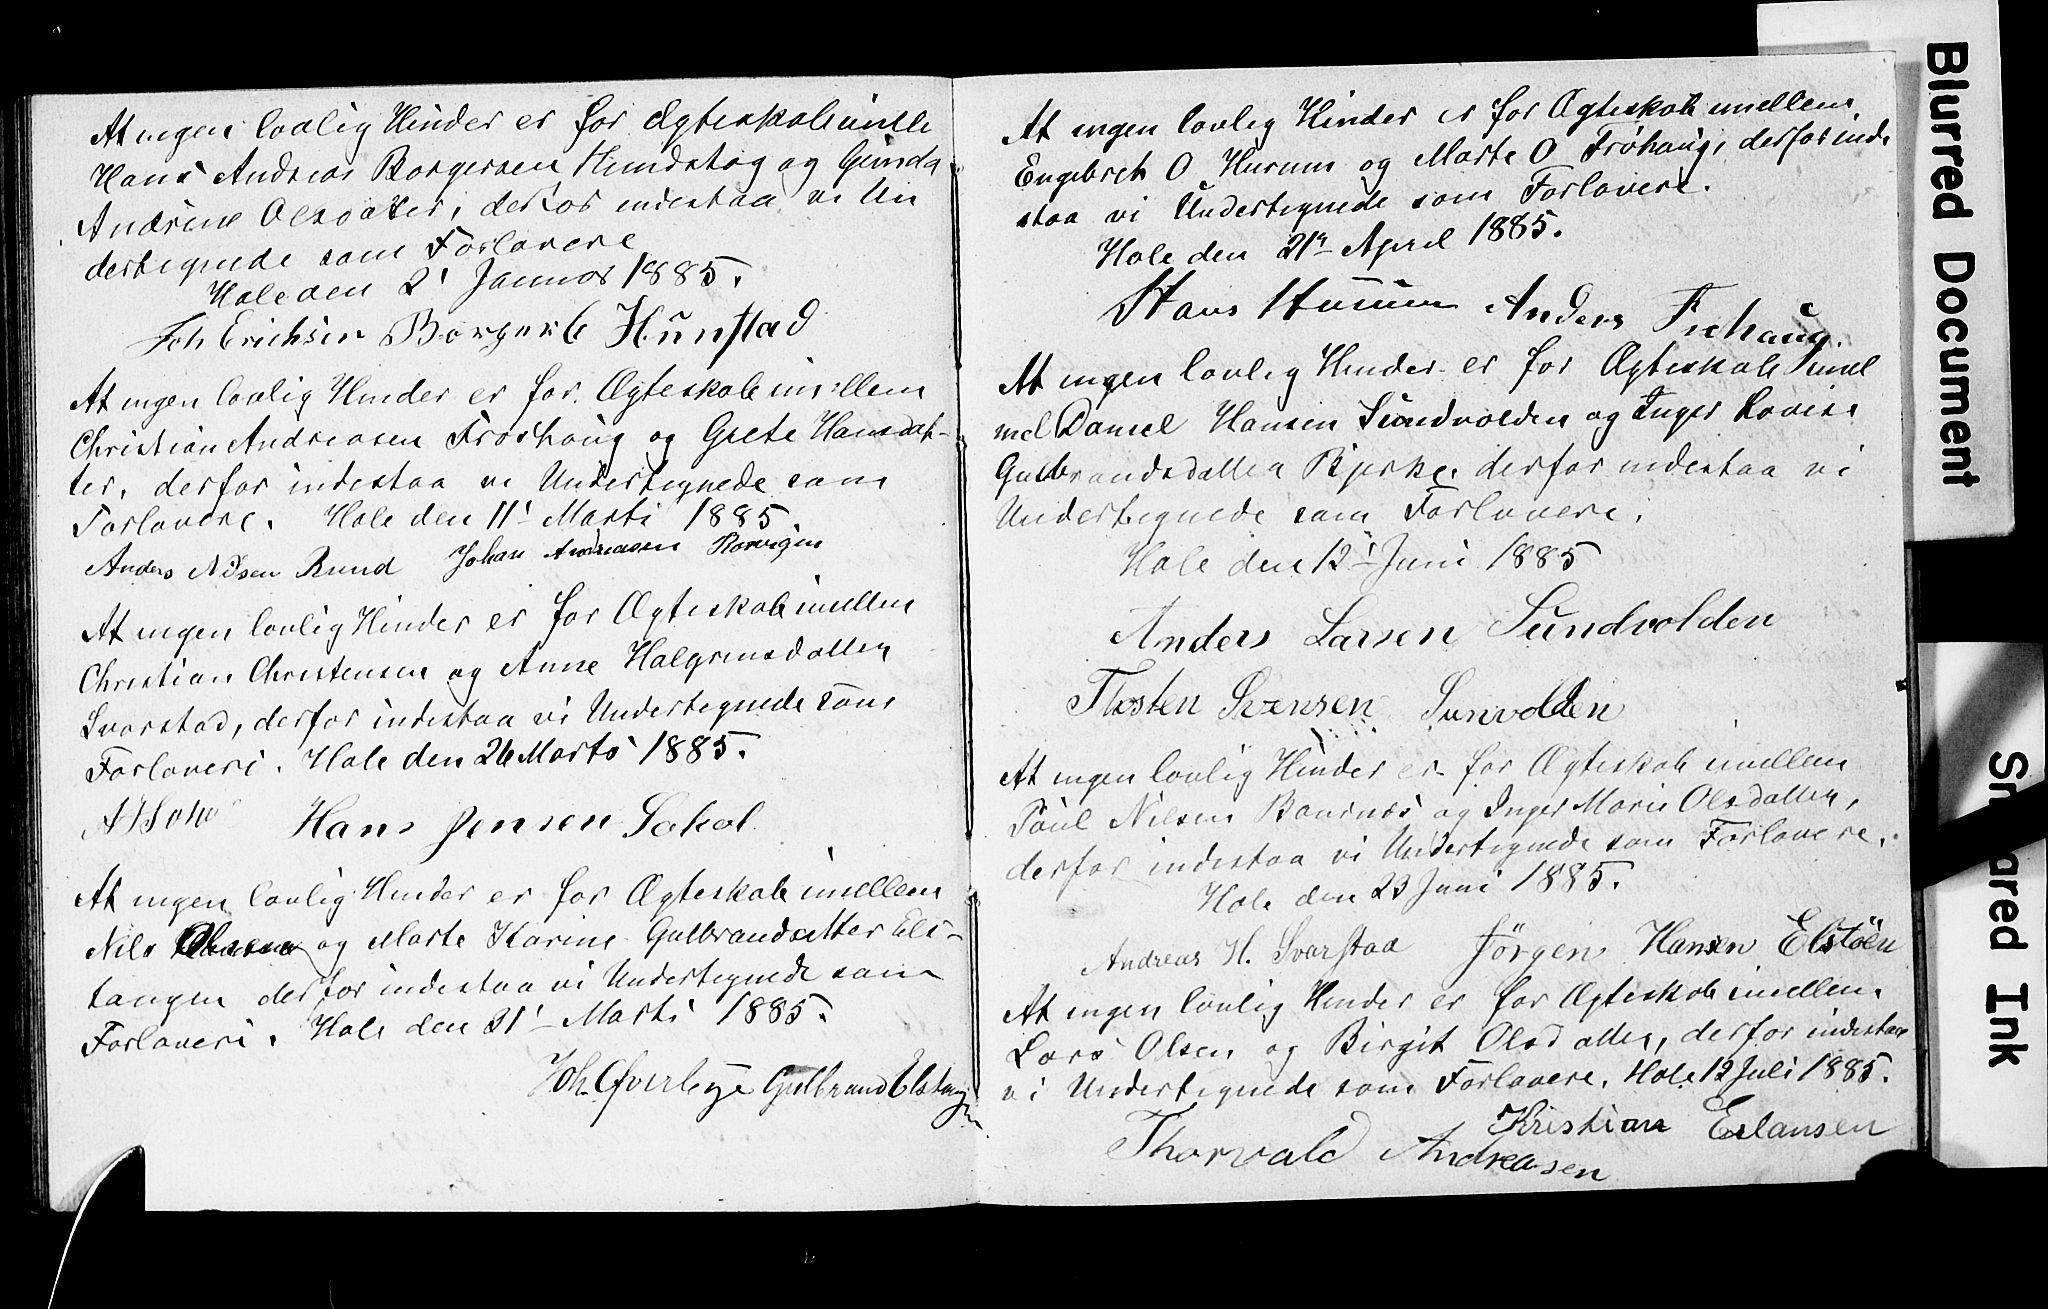 At ingen lovlig Hinder er for Ægteskab imelle
Hans Andreas Borgersen Hundstag og Gunda
Andrine Olsdatter, derfor indestaa vi Un
dertegnede som Forlovere
Hole den 2' Januar 1885.
Joh Erichsen Borger G Hunstad
At ingen lovlig Hinder er for Ægteskab imellem
Christian Andreasen Frøshaug og Grete Hansdat-
ter, derfor indestaa vi Undertegnede som
Forlovere. Hole den 11' Marts 1885.
Anders Nilsen Rund Johan Andreasen
At ingen lovlig Hinder er for Ægteskab imellem
Christian Christensen og Anne Halgrimsdatter
Svarstad, derfor indestaa vi Undertegnede som
Forlovere. Hole den 26 Marts 1885.
Hans Jensen
At ingen lovlig Hinder er for Ægteskab imellem
Nils og Marte Karine Gulbrandsatter Els-
tangen derfor indestaa vi Undertegnede som
Forlovere. Hole den 31' Marts 1885.
Joh. Gulbrand Elstangen
At ingen lovlig Hinder er for Ægteskab imellem
Engebret O Hurum og Marte O Frøhaug, derfor inde
staa vi Undertegnede som Forlovere.
Hole den 21' April 1885.
Hans Hurum Anders Frehaug.
At ingen lovlig Hinder er for Ægteskab imel
mel Daniel Hansen Sundvolden og Inger Lovise
Gulbrandsdatter Bjerke, derfor indestaa vi
Undertegnede som Forlovere.
Hole den 12' Juni 1885
Anders Larsen Sundvolden
Thosten Svensen Sunvolden
At ingen lovlig Hinder er for Ægteskab imellem
Poul Nilsen og Inger Marie Olsdatter,
derfor indestaa vi Undertegnede som Forlovere.
Hole den 23 Juni 1885.
Andreas H. Svarstad Jörgen Hansen Elstöen
At ingen lovlig Hinder er for Ægteskab imellem
Lars Olsen og Birgit Olsdatter, derfor indestaa
vi Undertegnede som Forlovere. Hole 12 Juli 1885.
Kristian Erlansen
Thorvald Andreasen
Blurred Document
Ink